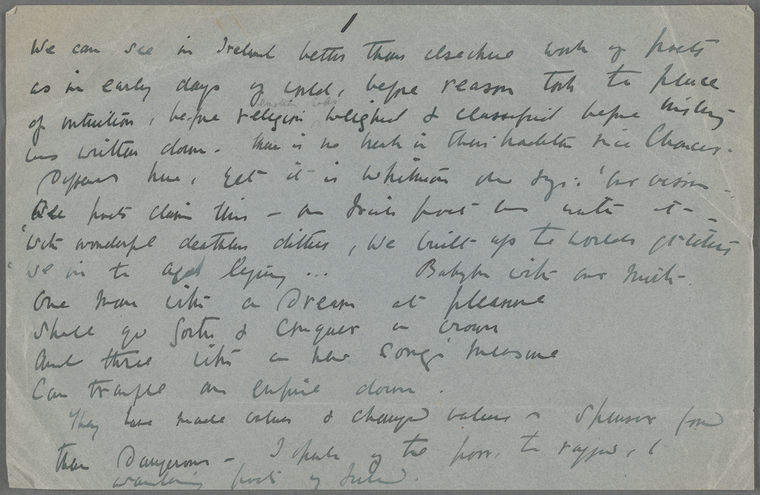 1
We can see in Ireland better than elsewhere work of poets
as in early days of world, before reason took the place
of intuition, before religion weighed & classified before history
was written down. There is no break in their tradition since Chaucer.
here, yet it is Whitman who says: 'our vision
All poets claim this — an Irish poet has
'With wonderful deathless ditties, we built up the worlds great cities
'We in the ages lying ... Babylon with our mirth.
One man with a Dream at pleasure
Shall go forth & Conquer a crown
And three with a new song's measure
Can trample an empire down.
They have made values & changed values & Spenser found
them Dangerous — I speak of the poor, the ragged, the
wandering poets of Ireland.